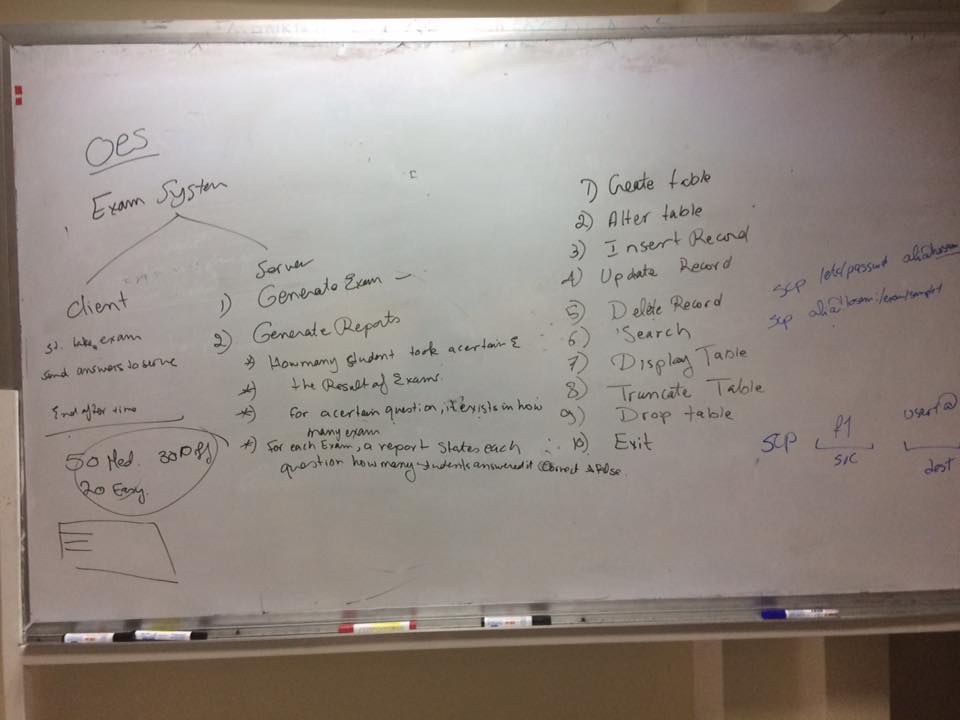 OES
Exam System
Client
st. take exam
send answers to serve
End after time
50 Med. 30 Diff
20 Easy.
Server
1) Generate Exam -
2) Generate Reports
*) How many student took a certain E
*) the Result of Exams.
*) for a certain question, it exists in how
many exam
*) For each Exam, a report States each
question how many students answered it Correct & False.
1) Create table
2) Alter table
3) Insert Record
4) Update Record
5) Delete Record
6) Search
7) Display Table
8) Truncate Table
9) Drop table
10) Exit
scp /etc/passwd
scp
scp f1 user1@
src dest